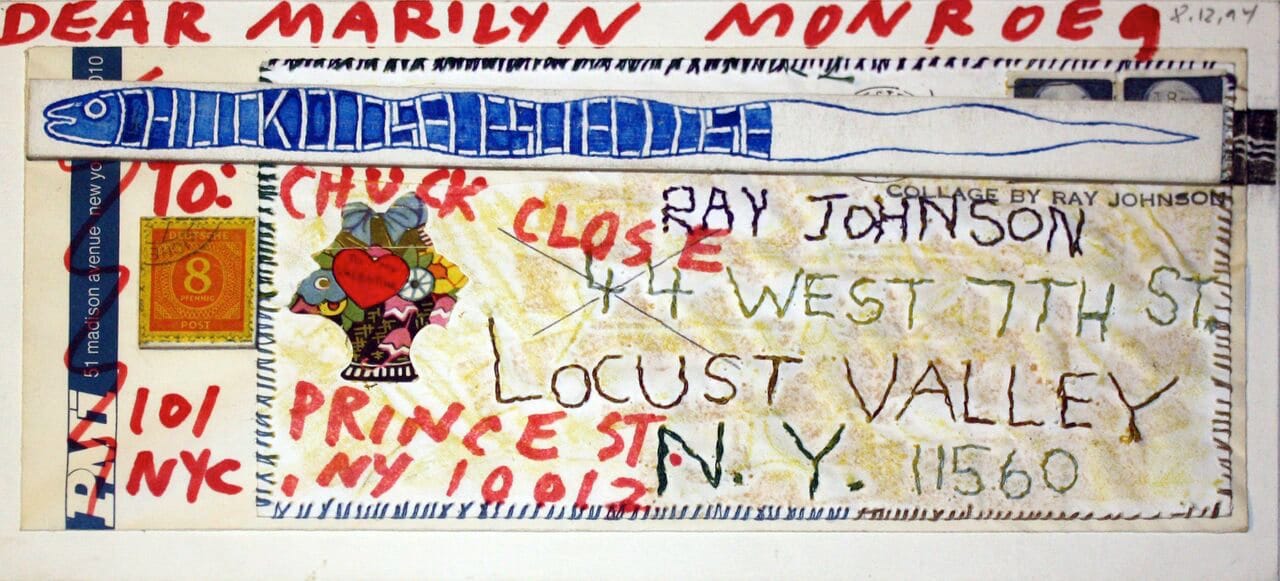 DEAR MARILYN MONROE9
8.12.94
COLLAGE BY RAY JOHNSON
TO: CHUCK CLOSE
RAY JOHNSON
44 WEST 7TH ST.
LOCUST VALLEY
N.Y. 11560
DEUTSCHE
8
PFENNIG
POST
51 madison avenue new yo
010
101 PRINCE ST.
NYC, NY 10012